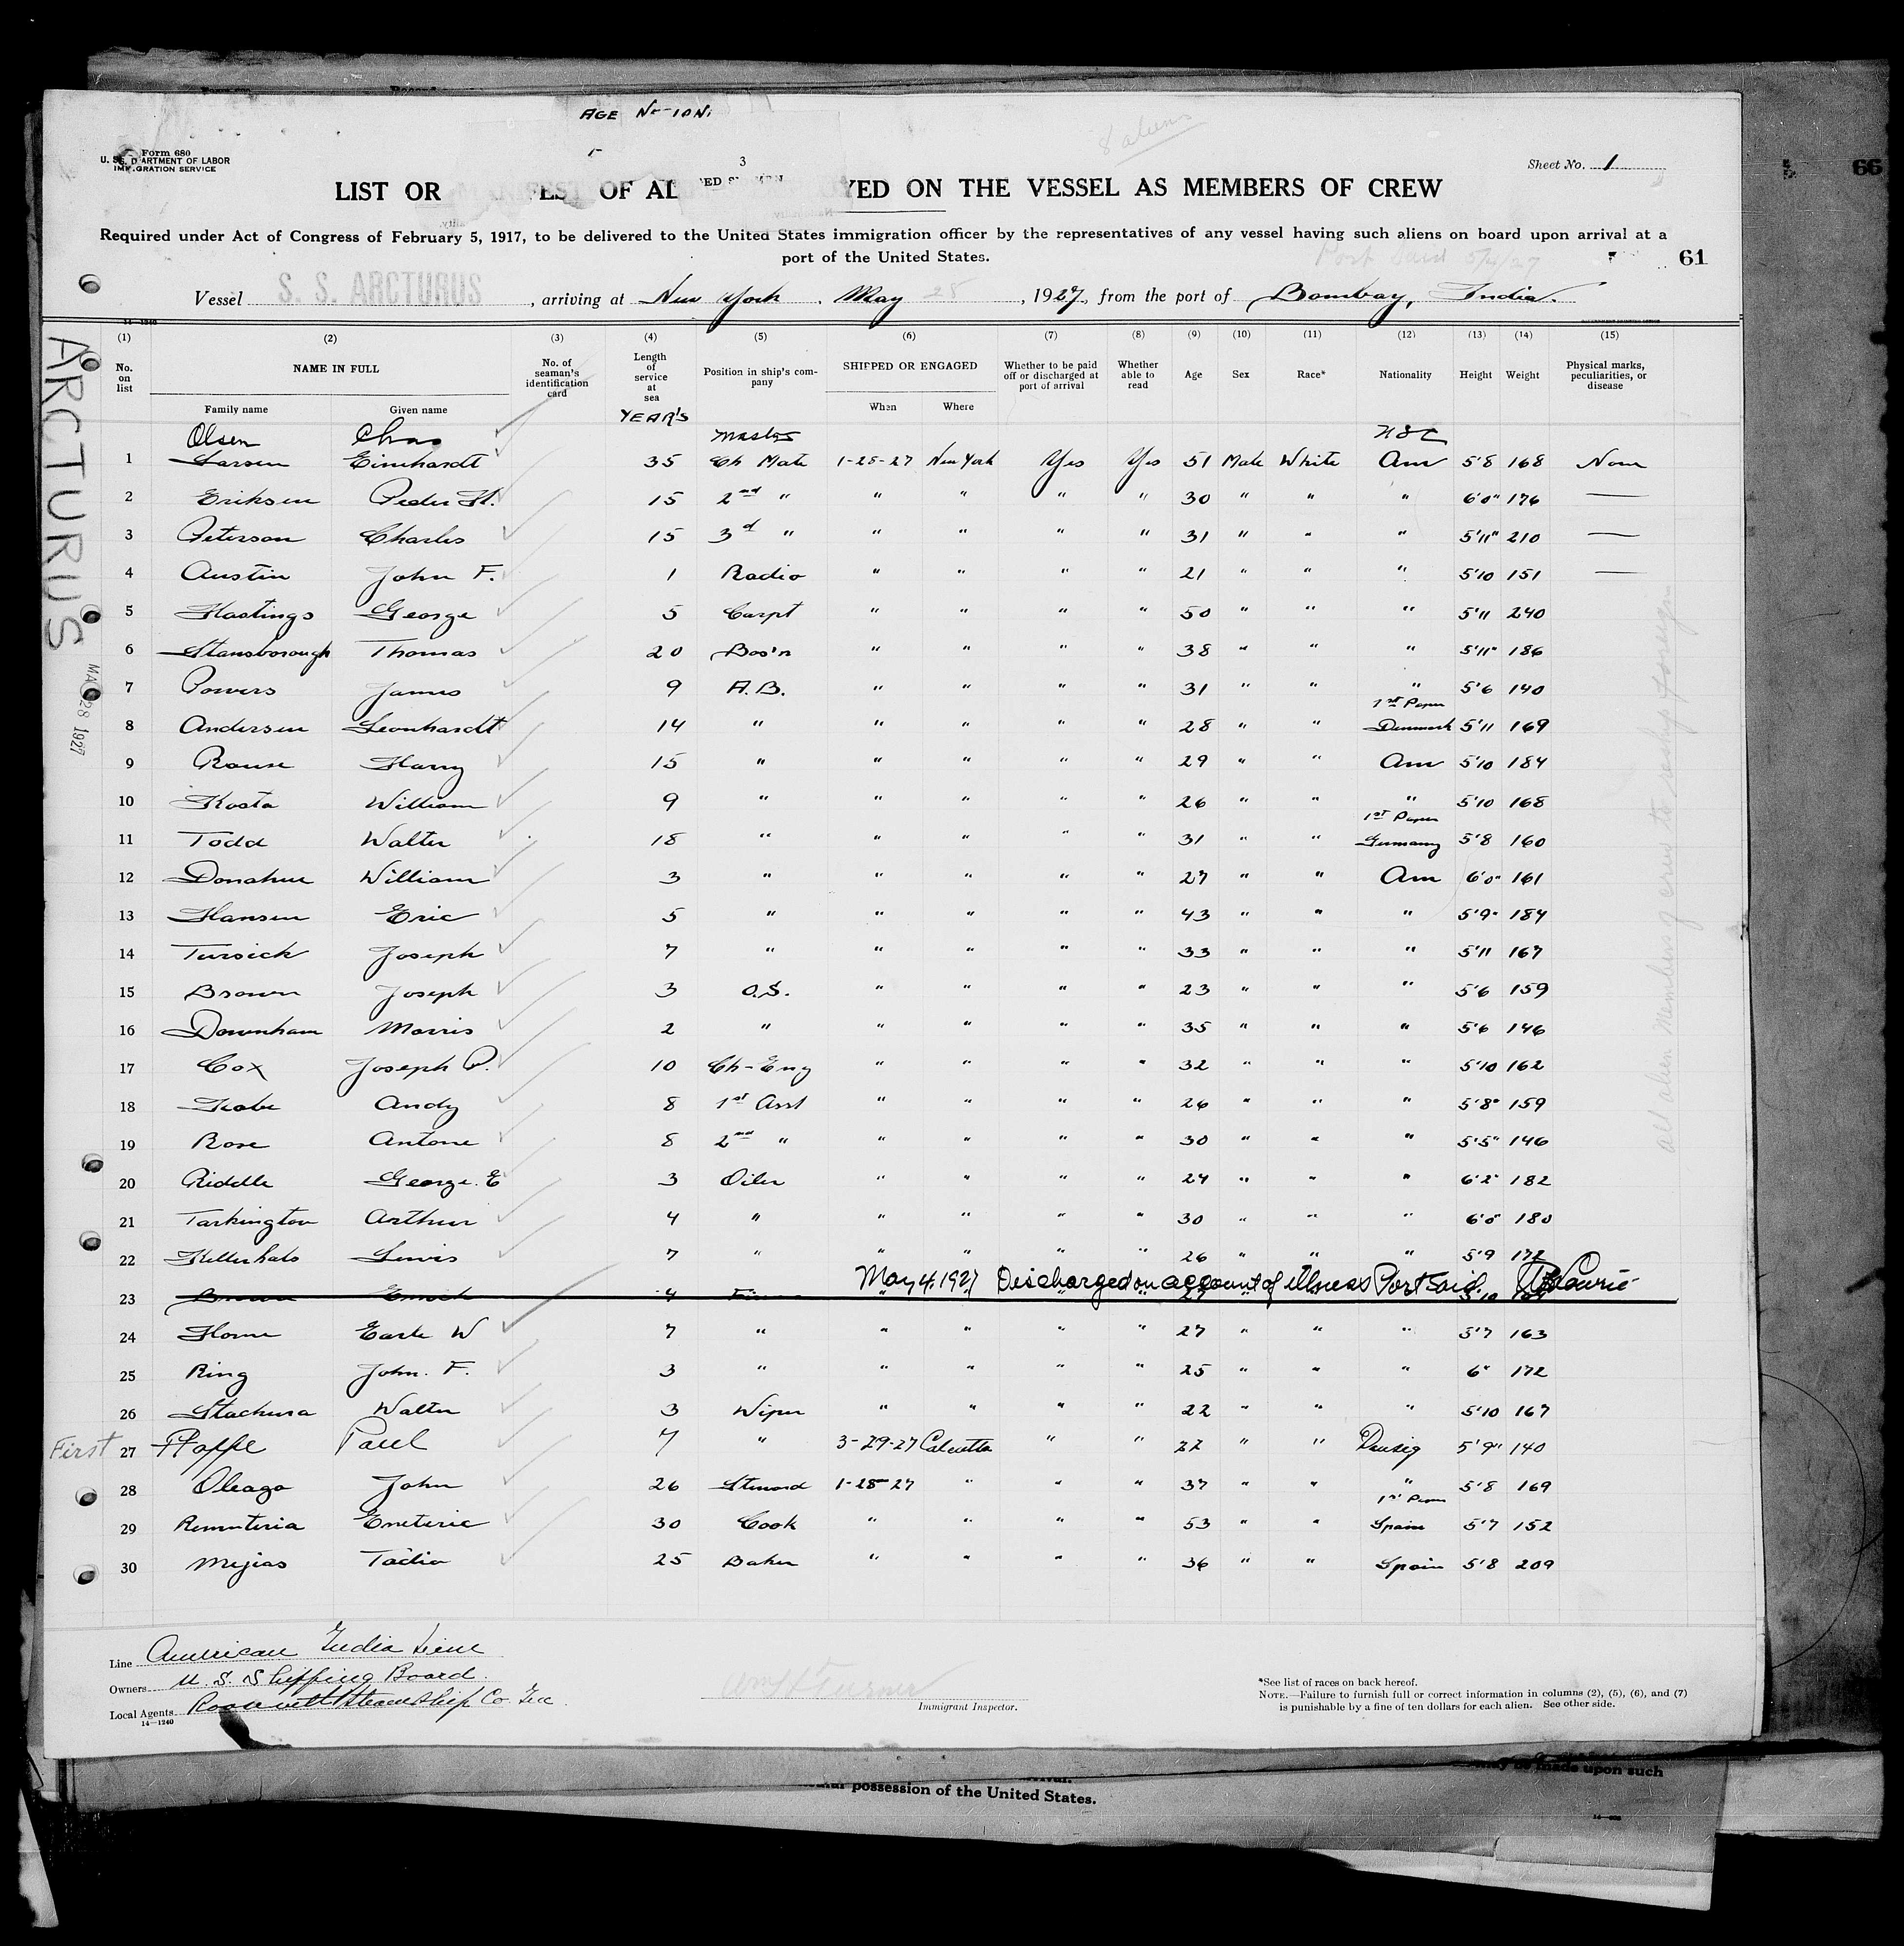 AGE No-10N.
8 aliens
Form 680
U. S. D ARTMENT OF LABOR
IMMIGRATION SERVICE
3
Sheet No. 1
LIST OR MANIFEST OF AL YED ON THE VESSEL AS MEMBERS OF CREW
Required under Act of Congress of February 5, 1917, to be delivered to the United States immigration officer by the representatives of any vessel having such aliens on board upon arrival at a
port of the United States.
Port Said 5/4/27
61
66
Vessel S. S. ARCTURUS, arriving at New York, May 28, 1927, from the port of Bombay, India.
14—1240
(1) (2) (3) (4) (5) (6) (7) (8) (9) (10) (11) (12) (13) (14) (15)
No. on list NAME IN FULL No. of seaman's identification card Length of service at sea Position in ship's company SHIPPED OR ENGAGED Whether to be paid off or discharged at port of arrival Whether able to read Age Sex Race* Nationality Height Weight Physical marks, peculiarities, or disease
Family name Given name YEAR'S When Where
Olsen Chas Master USC
1 Larsen Einhardt 35 Ch Mate 1-28-27 New York Yes Yes 51 Male White Am 5'8 168 None
2 Eriksen Peder H. 15 2nd " " " " " 30 " " " 6'0" 176 —
3 Peterson Charles 15 3d " " " " " 31 " " " 5'11" 210 —
4 Austin John F. 1 Radio " " " " 21 " " " 5'10 151 —
5 Hastings George 5 Carpt " " " " 50 " " " 5'11 240
6 Stansborough Thomas 20 Bos'n " " " " 38 " " " 5'11" 186
7 Powers James 9 A.B. " " " " 31 " " " 5'6 140
1st Paper
8 Andersen Leonhardt 14 " " " " " 28 " " Denmark 5'11 169
9 Rouse Harry 15 " " " " " 29 " " Am 5'10 184
10 Kosta William 9 " " " " " 26 " " " 5'10 168
1st Paper
11 Todd Walter 18 " " " " " 31 " " Germany 5'8 160
12 Donahue William 3 " " " " " 27 " " Am 6'0" 161
13 Hansen Eric 5 " " " " " 43 " " " 5'9" 184
14 Tursick Joseph 7 " " " " " 33 " " " 5'11 167
15 Brown Joseph 3 O.S. " " " " 23 " " " 5'6 159
16 Downham Morris 2 " " " " " 35 " " " 5'6 146
17 Cox Joseph P. 10 Ch-Eng " " " " 32 " " " 5'10 162
18 Andy 8 1st Asst " " " " 26 " " " 5'8" 159
19 Rose Antone 8 2nd " " " " " 30 " " " 5'5" 146
20 Riddle George. E 3 Oiler " " " " 24 " " " 6'2" 182
21 Tarkington Arthur 4 " " " " " 30 " " " 6'0" 180
22 Kellerhals Lewis 7 " " " " " 26 " " " 5'9 172
May 4, 1927 Discharged on account of illness Port Said.
23 Brown 4 27 5'10
24 Horne Earle W 7 " " " " " 27 " " " 5'7 163
25 Ring John. F. 3 " " " " " 25 " " " 6" 172
26 Stachura Walter 3 Wiper " " " " 22 " " " 5'10 167
First 27 Paul 7 " 3-29-27 Calcutta " " 22 " " Danzig 5'9" 140
28 Oleaga John 26 Steward 1-28-27 " " " 37 " " " 5'8 169
1st Paper
29 Rementeria Emeterie 30 Cook " " " " 53 " " Spain 5'7 152
30 Mejias Tadio 25 Baker " " " " 36 " " Spain 5'8 209
ARCTURUS
MAY 28 1927
all alien members of crew to reship foreign
Line American India Line
Owners U. S. Shipping Board
Local Agents Roosevelt Steamship Co Inc.
14—1240
Turner
Immigrant Inspector.
*See list of races on back hereof.
NOTE.—Failure to furnish full or correct information in columns (2), (5), (6), and (7)
is punishable by a fine of ten dollars for each alien. See other side.
may be made upon such
possession of the United States.